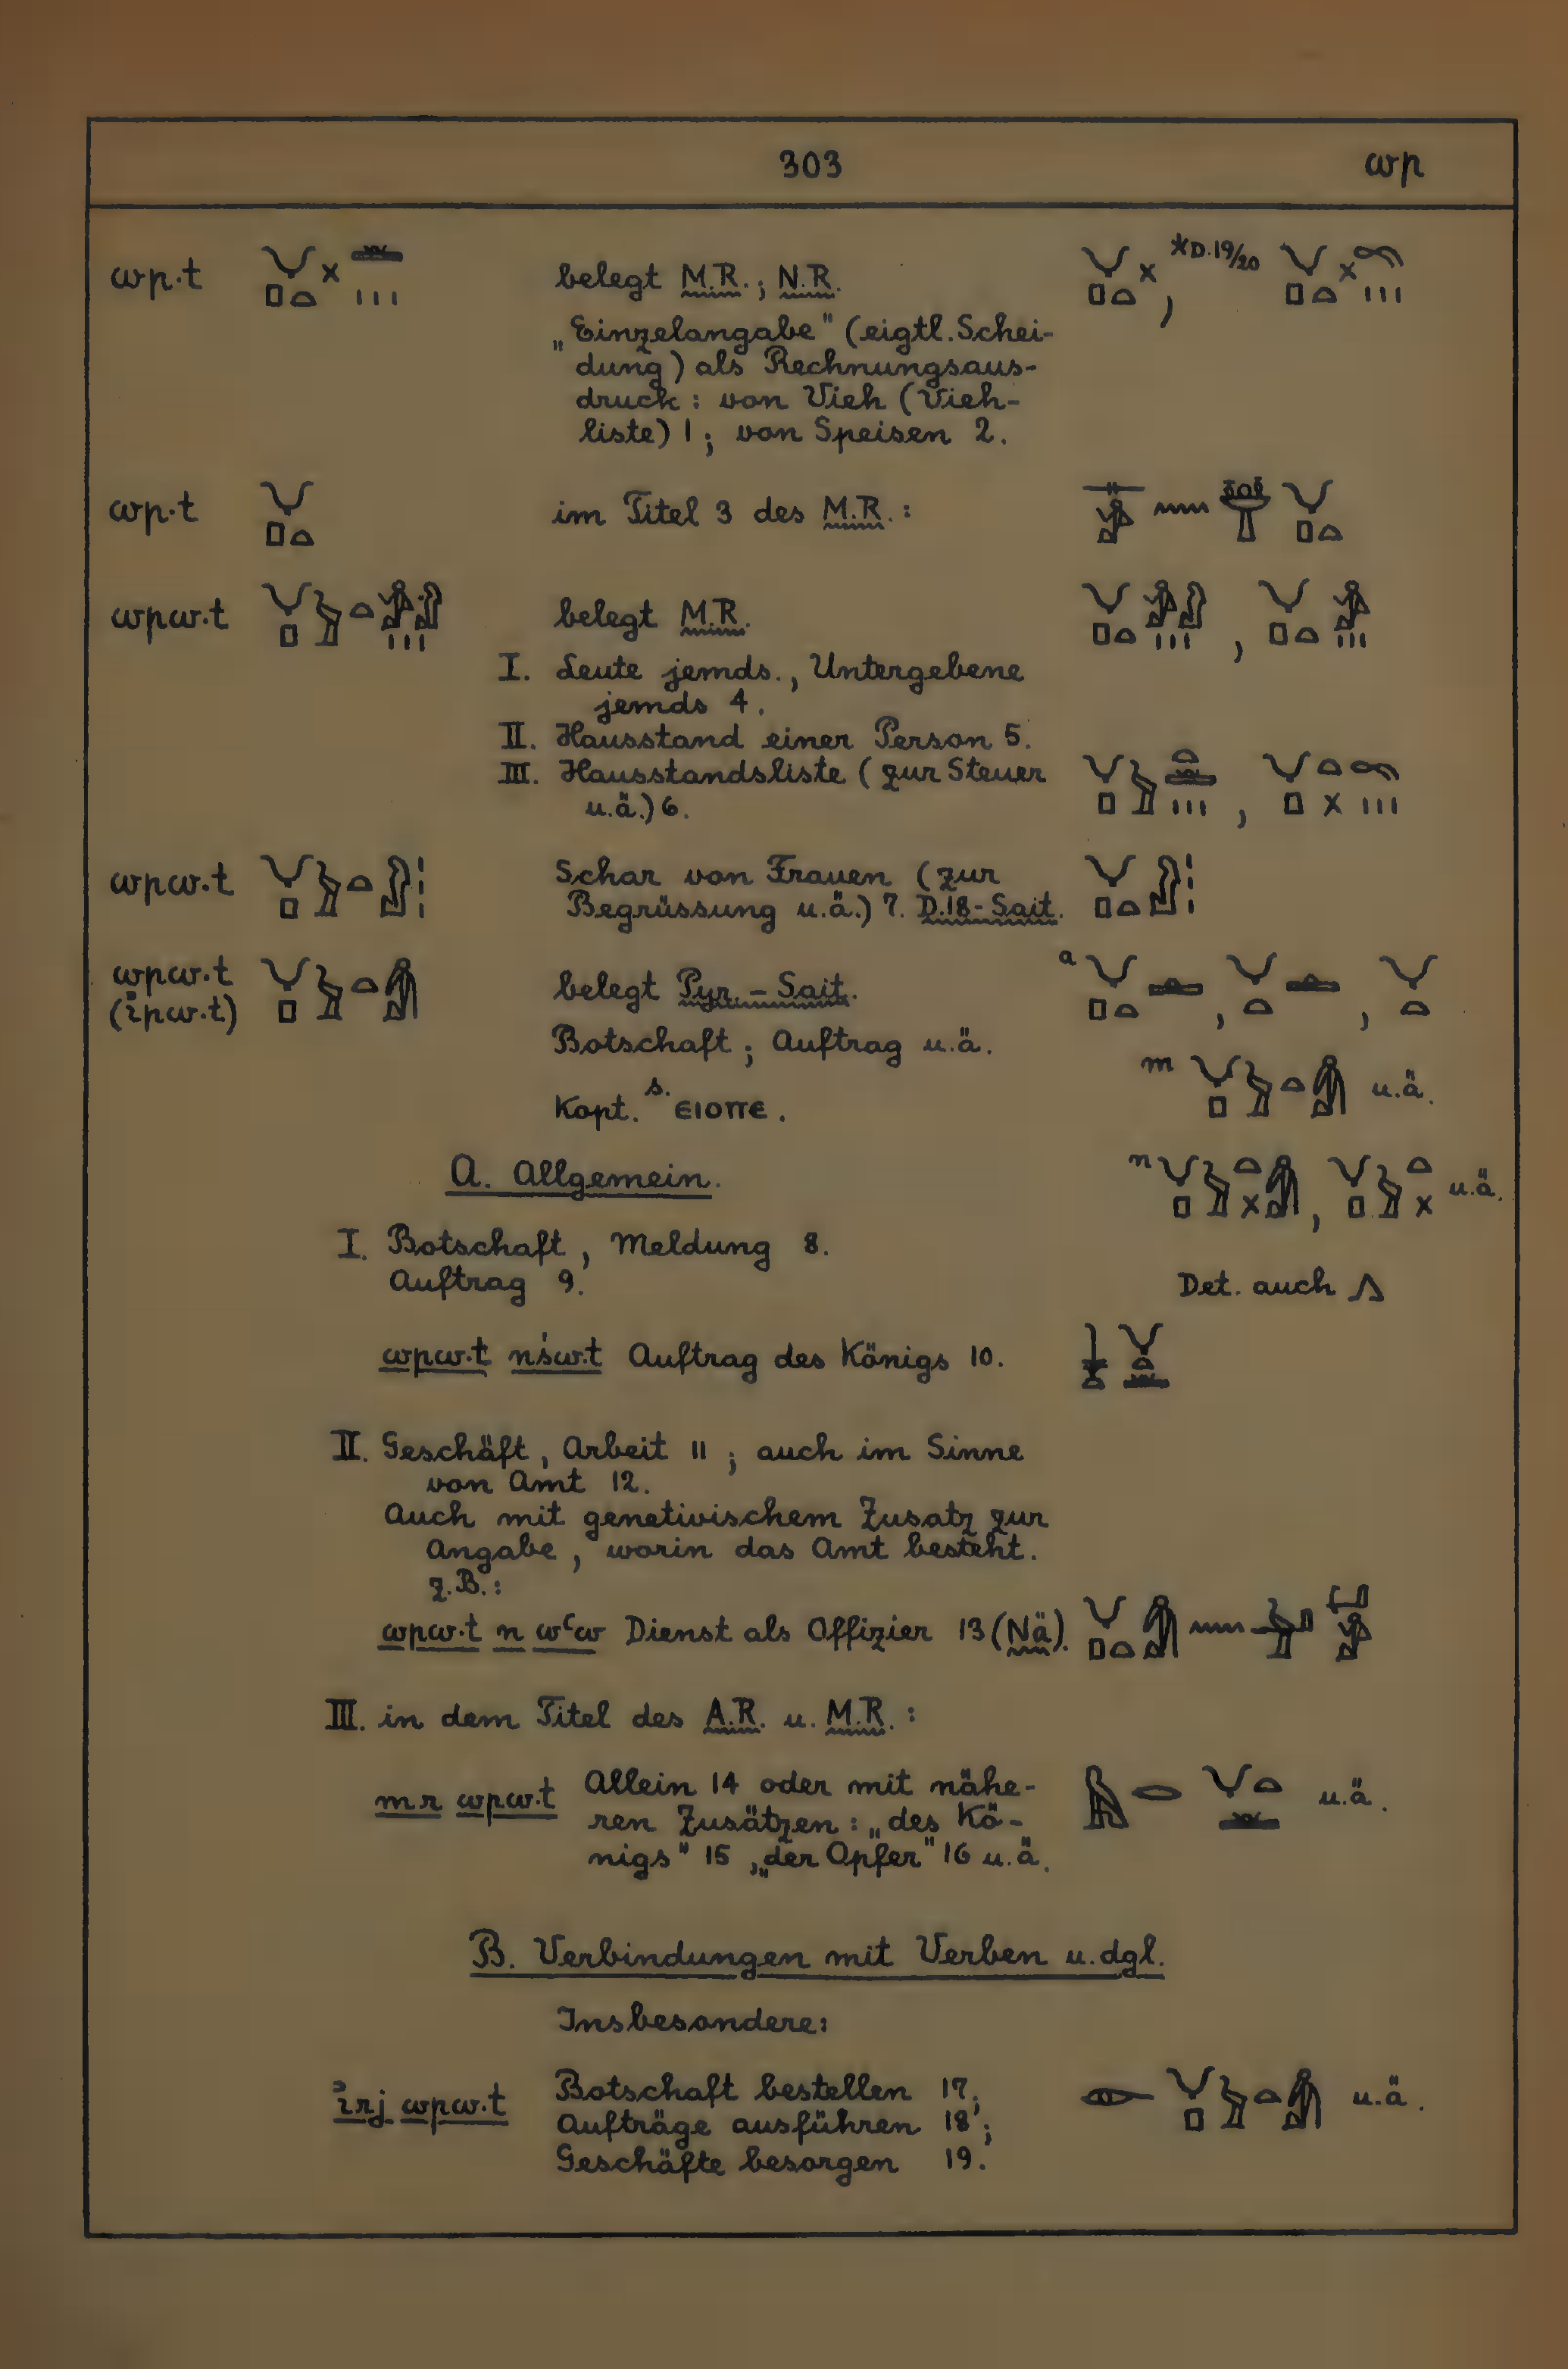 303 wp
wp.t belegt M.R.; N.R. *D.19/20
„Einzelangabe" (eigtl. Schei-
dung) als Rechnungsaus-
druck: von Vieh (Vieh-
liste) 1; von Speisen 2.
wp.t im Titel 3 des M.R.:
wpw.t belegt M.R.
I. Leute jemds., Untergebene
jemds 4.
II. Hausstand einer Person 5.
III. Hausstandsliste (zur Steuer
u.ä.) 6.
wpw.t Schar von Frauen (zur
Begrüssung u.ä.) 7. D.18-Sait.
wpw.t belegt Pyr. - Sait. a
(ỉpw.t)
Botschaft; Auftrag u.ä.
m u.ä.
Kopt. s. ⲉⲓⲟⲡⲉ.
A. Allgemein. n u.ä.
I. Botschaft, Meldung 8.
Auftrag 9. Det. auch
wpw.t nśw.t Auftrag des Königs 10.
II. Geschäft, Arbeit 11; auch im Sinne
von Amt 12.
Auch mit genetivischem Zusatz zur
Angabe, worin das Amt besteht.
z.B.:
wpw.t n wꜥw Dienst als Offizier 13 (Nä).
III. in dem Titel des A.R. u. M.R.:
m.r wpw.t Allein 14 oder mit nähe- u.ä.
ren Zusätzen: „des Kö-
nigs" 15, „der Opfer" 16 u.ä.
B. Verbindungen mit Verben u.dgl.
Insbesondere:
ỉrj wpw.t Botschaft bestellen 17; u.ä.
Aufträge ausführen 18;
Geschäfte besorgen 19.